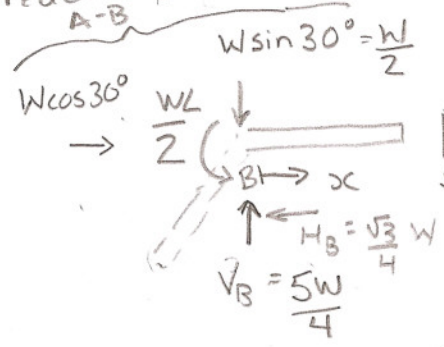 A-B
W sin 30° = W/2
W cos 30°
WL/2
B
x
H_B = √3/4 W
V_B = 5W/4